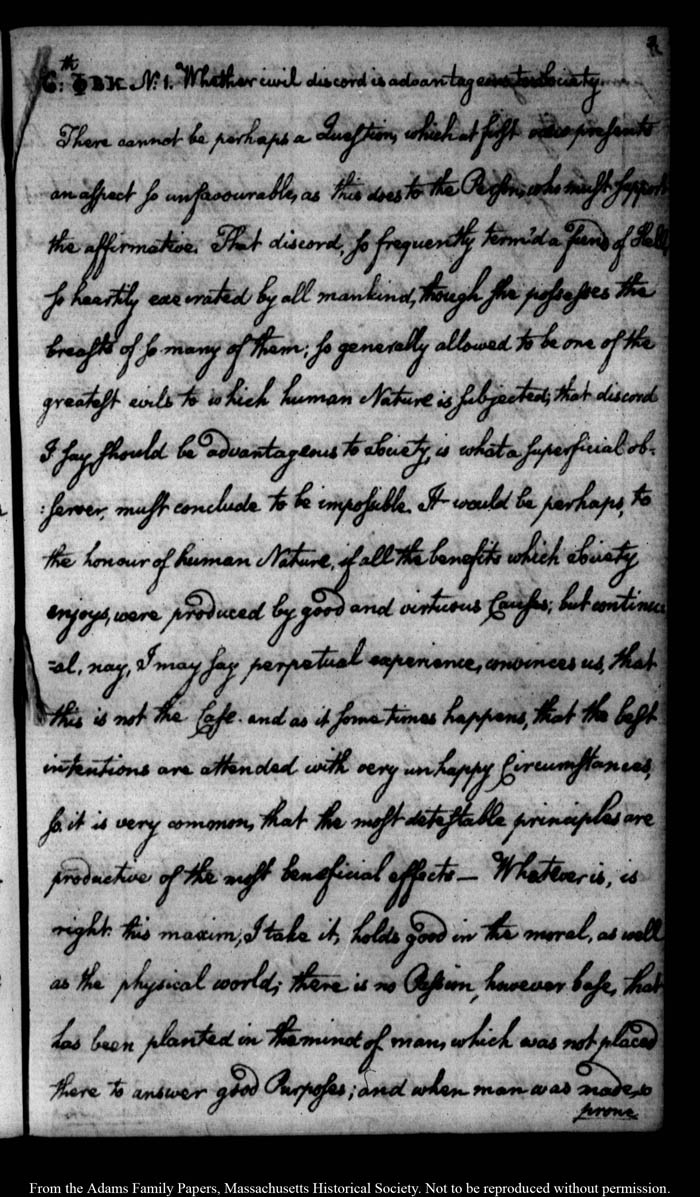 6:th ΦBK. No. 1. Whether civil discord is advantageous to Society.
There cannot be perhaps a Question, which at first view presents
an aspect so unfavourable, as this does to the Person, who must support
the affirmative. That discord, so frequently term'd a fiend of Hell,
so heartily execrated by all mankind, though she possesses the
breasts of so many of them; so generally allowed to be one of the
greatest evils to which human Nature is subjected; that discord
I say, should be advantageous to Society, is what a superficial ob-
:server, must conclude to be impossible. It would be perhaps, to
the honour of human Nature, if all the benefits which Society
enjoys, were produced by good and virtuous Causes; but continu
=al, nay, I may say perpetual experience, convinces us, that
this is not the Case. and as it sometimes happens, that the best
intentions are attended with very unhappy Circumstances,
so it is very common, that the most detestable principles are
productive of the most beneficial effects — Whatever is, is
right: this maxim, I take it, holds good in the moral, as well
as the physical world; there is no Passion, however base, that
has been planted in the mind of man, which was not placed
there to answer good Purposes; and when man was made so
prone
From the Adams Family Papers, Massachusetts Historical Society. Not to be reproduced without permission.